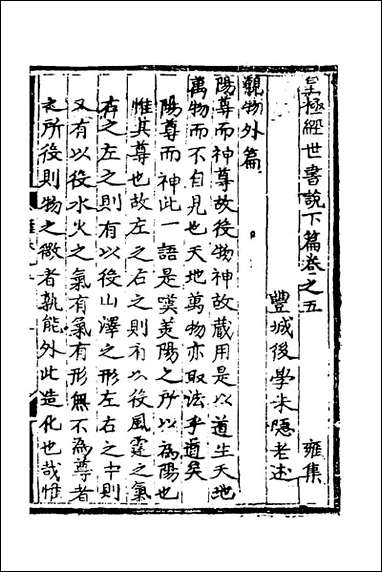 皇極經世書說下篇卷之五 雍集
豐城後學朱隱老述
觀物外篇
陽尊而神尊故役物神故藏用是以道生天地
萬物而不自見也天地萬物亦取法乎道矣
陽尊而神此一語是嘆羙陽之所以為陽也
惟其尊也故左之右之則有以役風霆之氣
右之左之則有以役山澤之形左右之中則
又有以役水火之氣有氣有形無不為尊者
之所役則物之微者孰能外此造化也哉惟